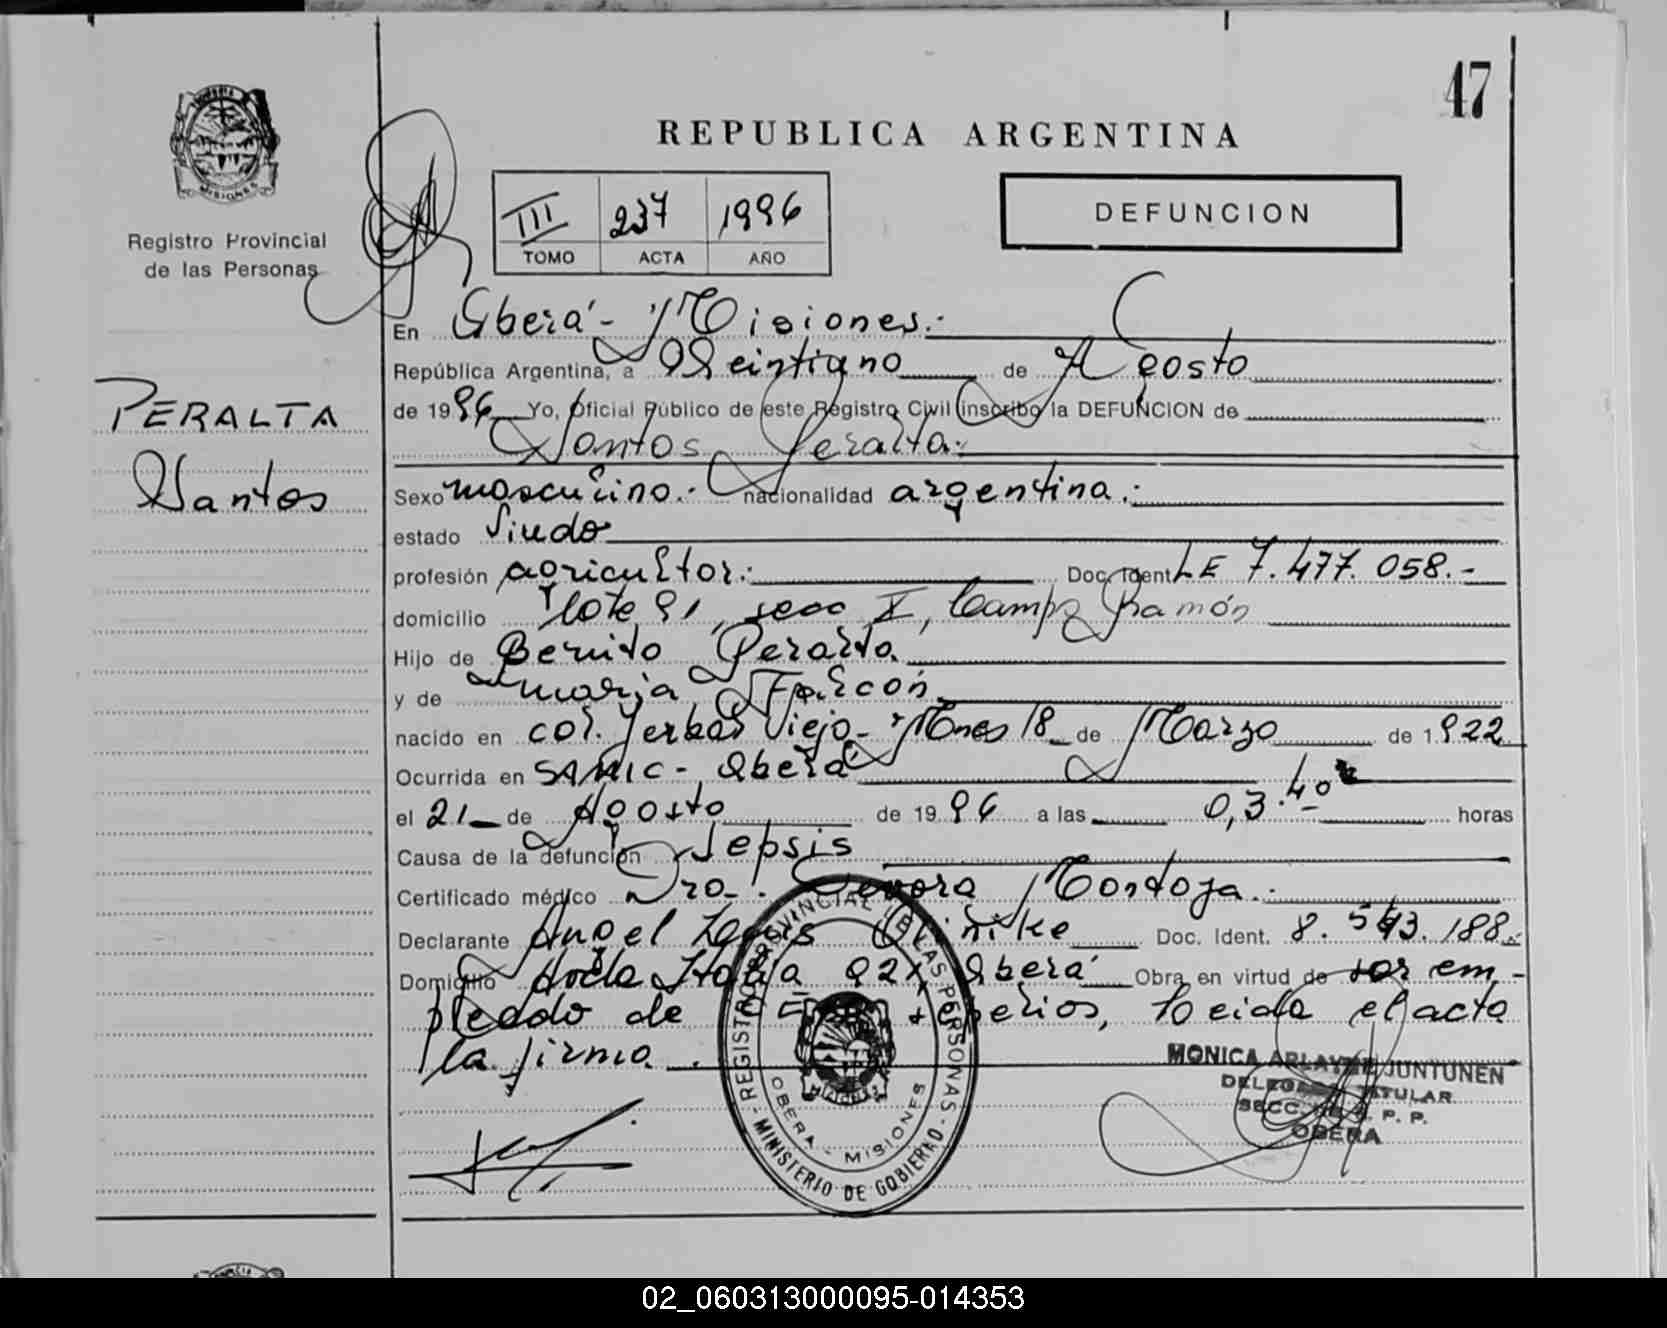 47
REPUBLICA ARGENTINA
MISIONES
Registro Provincial
de las Personas
III 237 1996
TOMO ACTA AÑO
DEFUNCION
En Oberá - Misiones.-
República Argentina, a Veintiuno de Agosto
de 1996 Yo, Oficial Público de este Registro Civil inscribo la DEFUNCION de
Santos Peralta.-
PERALTA
Santos
Sexo masculino.- nacionalidad argentina.-
estado Viudo
profesión agricultor.- Doc. Ident. LE 7.477.058.-
domicilio lote 91, secc I, Campo Ramón
Hijo de Benito Peralta
y de maria Falcón
nacido en col. Yerbal Viejo - Mnes 18 de Marzo de 1.922
Ocurrida en SAMIC - Oberá
el 21 de Agosto de 1996 a las 03.40 horas
Causa de la defunción Sepsis
Certificado médico Dra. Montoya.-
Declarante Angel Luis Doc. Ident. 8.543.188.-
Domicilio Avda Italia Oberá Obra en virtud de ser em-
pleado de sepelios, leida el acta
la firma.
REGISTRO PROVINCIAL DE LAS PERSONAS
MINISTERIO DE GOBIERNO
OBERA - MISIONES
MONICA ARLAYNE JUNTUNEN
DELEGADA TITULAR
SECC. R. P. P.
OBERA
02_060313000095-014353